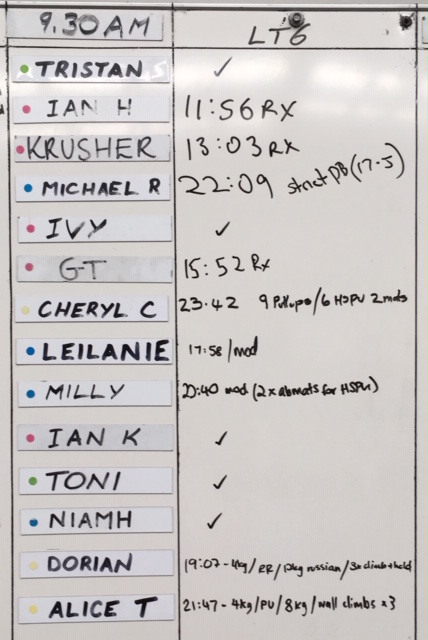 9.30AM LTG
TRISTAN ✓
IAN H 11:56 RX
KRUSHER 13:03 RX
MICHAEL R 22:09 strict DB (17.5)
IVY ✓
GT 15:52 Rx
CHERYL C 23.42 9 Pullups/6 HSPU 2 mats
LEILANIE 17:58/mod
MILLY 20:40 mod (2x abmats for HSPU)
IAN K ✓
TONI ✓
NIAMH ✓
DORIAN 19:07 - 4kg/RR/12kg russian/3x climb+hold
ALICE T 21:47 - 4kg/PU/8kg/wall climbs x3